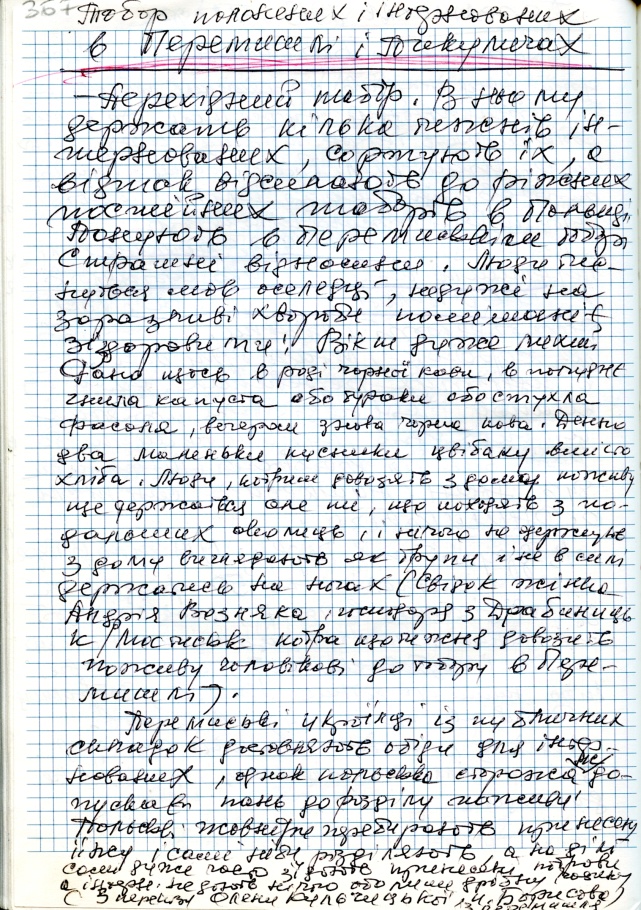 367 Табор полонених і інтернованих
в Перемишлі і Пикуличах
— Перехідний табір. В ньому
держать кілька тижнів ін-
тернованих, сортують їх, а
відтак відсилають до ріжних
постійних таборів в Польщі
Панують в Перемиськім таборі
Страшні відносини. Люди тис-
нуться мов оселедці, недужі на
заразливі хвороби поміж
здоровими! Вікт дуже лихий
Рано щось в роді чорної кави, в полудне
гнила капуста або бураки або стухла
фасоля, вечером знова чорна кава. Денно
два маленькі кусники цвібаку вмісто
хліба. Люди, котрим довозять з дому поживу
ще держаться але ті, що походять з по-
дальших околиць, і нічого не держуть
з дому виглядають як трупи і не в силі
держатись на ногах (Свідок жінка
Андрія Возняка, господаря з
к/Мостиськ котра щотижня довозить
поживу чоловікові до табору в Пере-
мишлі).
Перемиські українці із публичних
складок доставляють обіди для інтер-
нованих, однак польська сторожа не до-
пускає пань до розділу поживи!
Польські жовніри перебирають принесену
їжу і самі ніби розділять а на ділі
самі дуже часто з'їдають принесені потрави
а інтерн. не дають нічого або лише дрібну частину
(З переказу Олени Кульчицької и. Борисова
з Перемишля